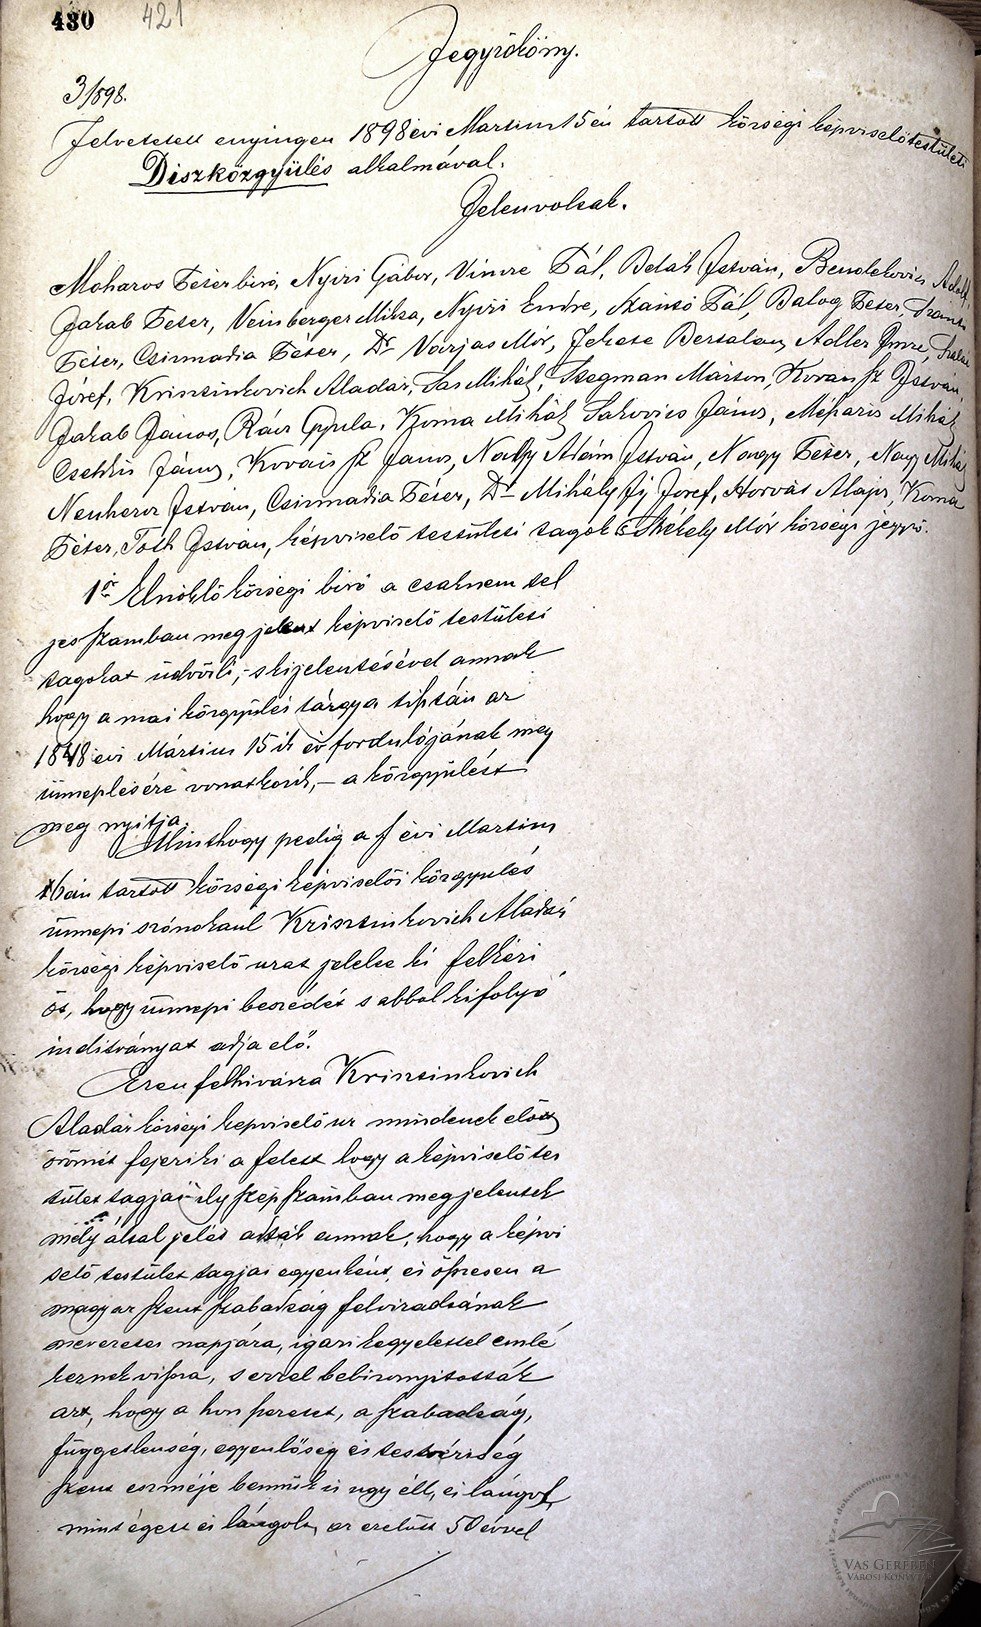 430 421
Jegyzőköny.
3/898.
Felvetetett enyingen 1898 évi Martius 15 én tartott községi képviselőtestületi
Diszközgyülés alkalmával.
Jelenvoltak.
Moharos Péter biró, Nyiri Gábor, Vincze Pál, Bedák István, Bendekovics Adolf,
Jakab Peter, Veinberger Miksa, Nyiri Endre, Szántó Pál, Balog Peter,
Péter, Csizmadia Péter, Dr Varjas Mór, Fekete Bertalan, Adler Imre,
József, Krisztinkovich Aladár, Sas Mihály, Szegman Márton, Kovats István,
Jakab János, Rácz Gyula, Koma Mihály Sakovics János, Mihály
János, Kovats János, Nagy Ádám István, Nagy Péter, Nagy Mihály
István, Csizmadia Péter, Dr Mihályfy József, Horvát Alajos, Koma
Péter, Toth István, képviselő testületi tagok Székely Mór községi jegyző.
1ör Elnöklő községi biró a csaknem tel
jes számban meg jelent képviselő testületi
tagokat üdvözli, – s kijelentésével annak
hogy a mai közgyülés tárgya tisztán az
1848 évi Mártius 15 ik év fordulójának meg
ünneplésére vonatkozik, – a közgyülést
meg nyitja.
Minthogy pedig a f évi Martius
6 án tartott községi képviselői közgyulés
ünnepi szónokaul Krisztinkovich Aladár
községi képviselő urat jelelte ki felkéri
őt, hogy ünnepi beszédét s abbol kifolyó
inditványat adja elő.
Ezen felhivásra Krisztinkovich
Aladár községi kepviselő ur mindenek előtt
örömét fejezi ki a felett hogy a képviselő tes
tület tagjai ily szép számban meg jelentek
mely által jelét adták annak, hogy a képvi
selő testület tagjai egyenként, és összesen a
magyar szent szabadság felviradtának
nevezetes napjára, igazi kegyelettel emlé
keznek vissza, s ezzel bebizonyitották
azt, hogy a hon szeretet, a szabadság,
függetlenség, egyenlőség és testvériség
szent eszméje bennük is ugy élt, és lángolt,
mint égett és lángolt, az ezelőtt 50 évvel
VAS GEREBEN
VÁROSI KÖNYVTÁR